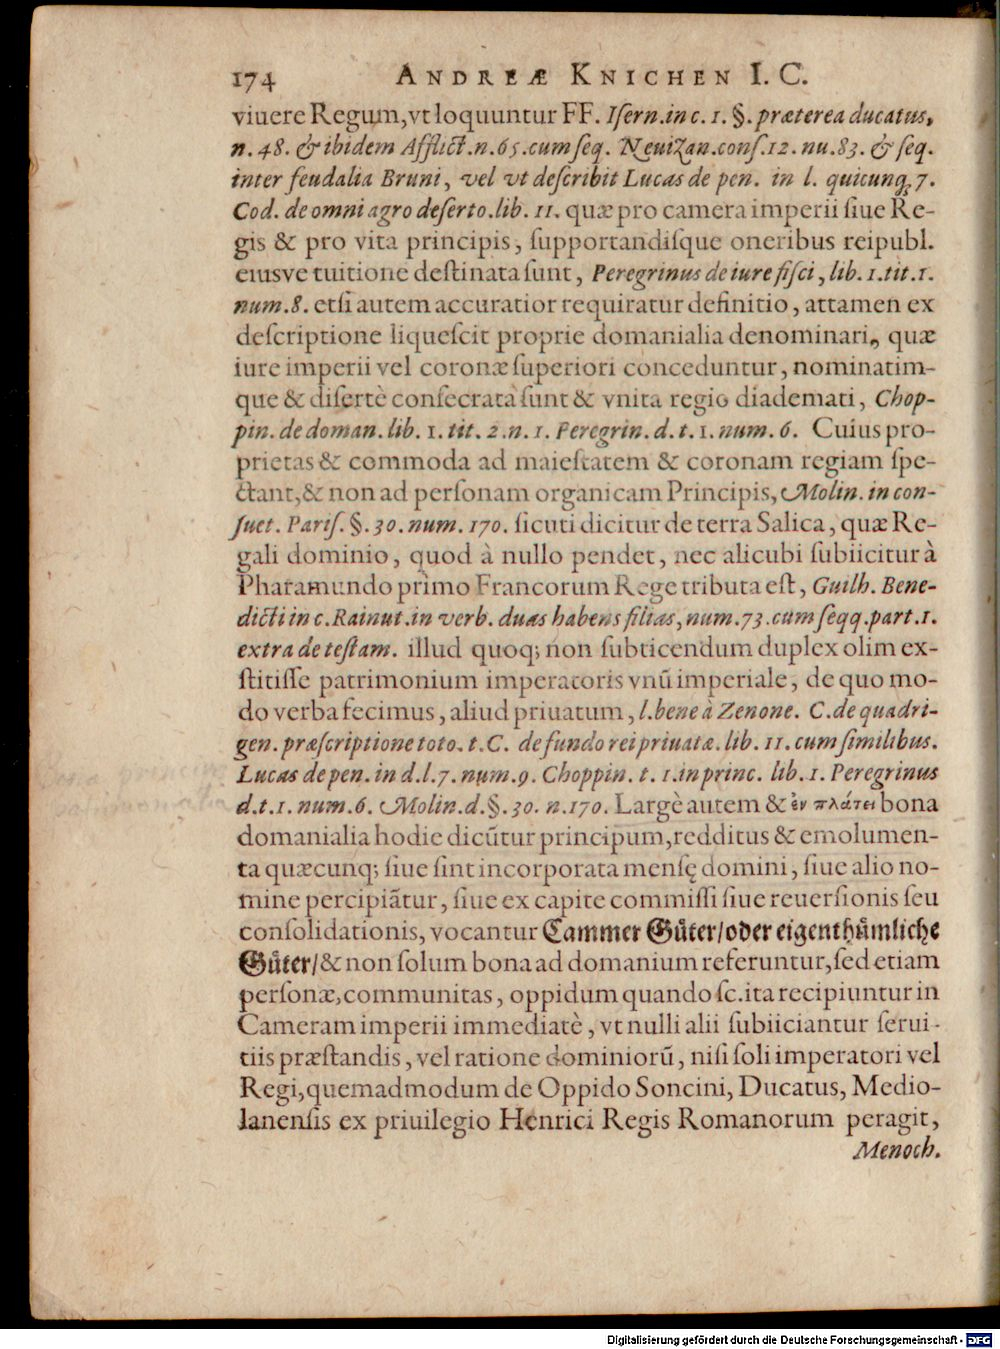 174 ANDREÆ KNICHEN I. C.
viuere Regum, vt loquuntur FF. Iſern. in c. 1. §. præterea ducatus,
n. 48. & ibidem Afflict. n. 65. cum ſeq. NeuiZan. conſ. 12. nu. 83. & ſeq.
inter feudalia Bruni, vel vt deſcribit Lucas de pen. in l. quicunq; 7.
Cod. de omni agro deſerto. lib. 11. quæ pro camera imperii ſiue Re-
gis & pro vita principis, ſupportandiſque oneribus reipubl.
eiusve tuitione deſtinata ſunt, Peregrinus de iure fiſci, lib. 1. tit. 1.
num. 8. etſi autem accuratior requiratur definitio, attamen ex
deſcriptione liqueſcit proprie domanialia denominari, quæ
iure imperii vel coronæ ſuperiori conceduntur, nominatim-
que & diſertè conſecrata ſunt & vnita regio diademati, Chop-
pin. de doman. lib. 1. tit. 2. n. 1. Peregrin. d. t. 1. num. 6. Cuius pro-
prietas & commoda ad maieſtatem & coronam regiam ſpe-
ctant, & non ad perſonam organicam Principis, Molin. in con-
ſuet. Pariſ. §. 30. num. 170. ſicuti dicitur de terra Salica, quæ Re-
gali dominio, quod à nullo pendet, nec alicubi ſubiicitur à
Pharamundo primo Francorum Rege tributa eſt, Guilh. Bene-
dicti in c. Rainut. in verb. duas habens filias, num. 73. cum ſeqq. part. 1.
extra de teſtam. illud quoq; non ſubticendum duplex olim ex-
ſtitiſſe patrimonium imperatoris vnū imperiale, de quo mo-
do verba fecimus, aliud priuatum, l. bene à Zenone. C. de quadri-
gen. præſcriptione toto. t. C. de fundo rei priuatæ. lib. 11. cum ſimilibus.
Lucas de pen. in d. l. 7. num. 9. Choppin. t. 1. in princ. lib. 1. Peregrinus
d. t. 1. num. 6. Molin. d. §. 30. n. 170. Largè autem & ἐν πλάτει bona
domanialia hodie dicūtur principum, redditus & emolumen-
ta quæcunq; ſiue ſint incorporata menſę domini, ſiue alio no-
mine percipiātur, ſiue ex capite commiſſi ſiue reuerſionis ſeu
conſolidationis, vocantur Cammer Guͤter/ oder eigenthuͤmliche
Guͤter/ & non ſolum bona ad domanium referuntur, ſed etiam
perſonæ, communitas, oppidum quando ſc. ita recipiuntur in
Cameram imperii immediatè, vt nulli alii ſubiiciantur ſerui-
tiis præſtandis, vel ratione dominiorū, niſi ſoli imperatori vel
Regi, quemadmodum de Oppido Soncini, Ducatus, Medio-
lanenſis ex priuilegio Henrici Regis Romanorum peragit,
Menoch.
Digitalisierung gefördert durch die Deutsche Forschungsgemeinschaft - DFG